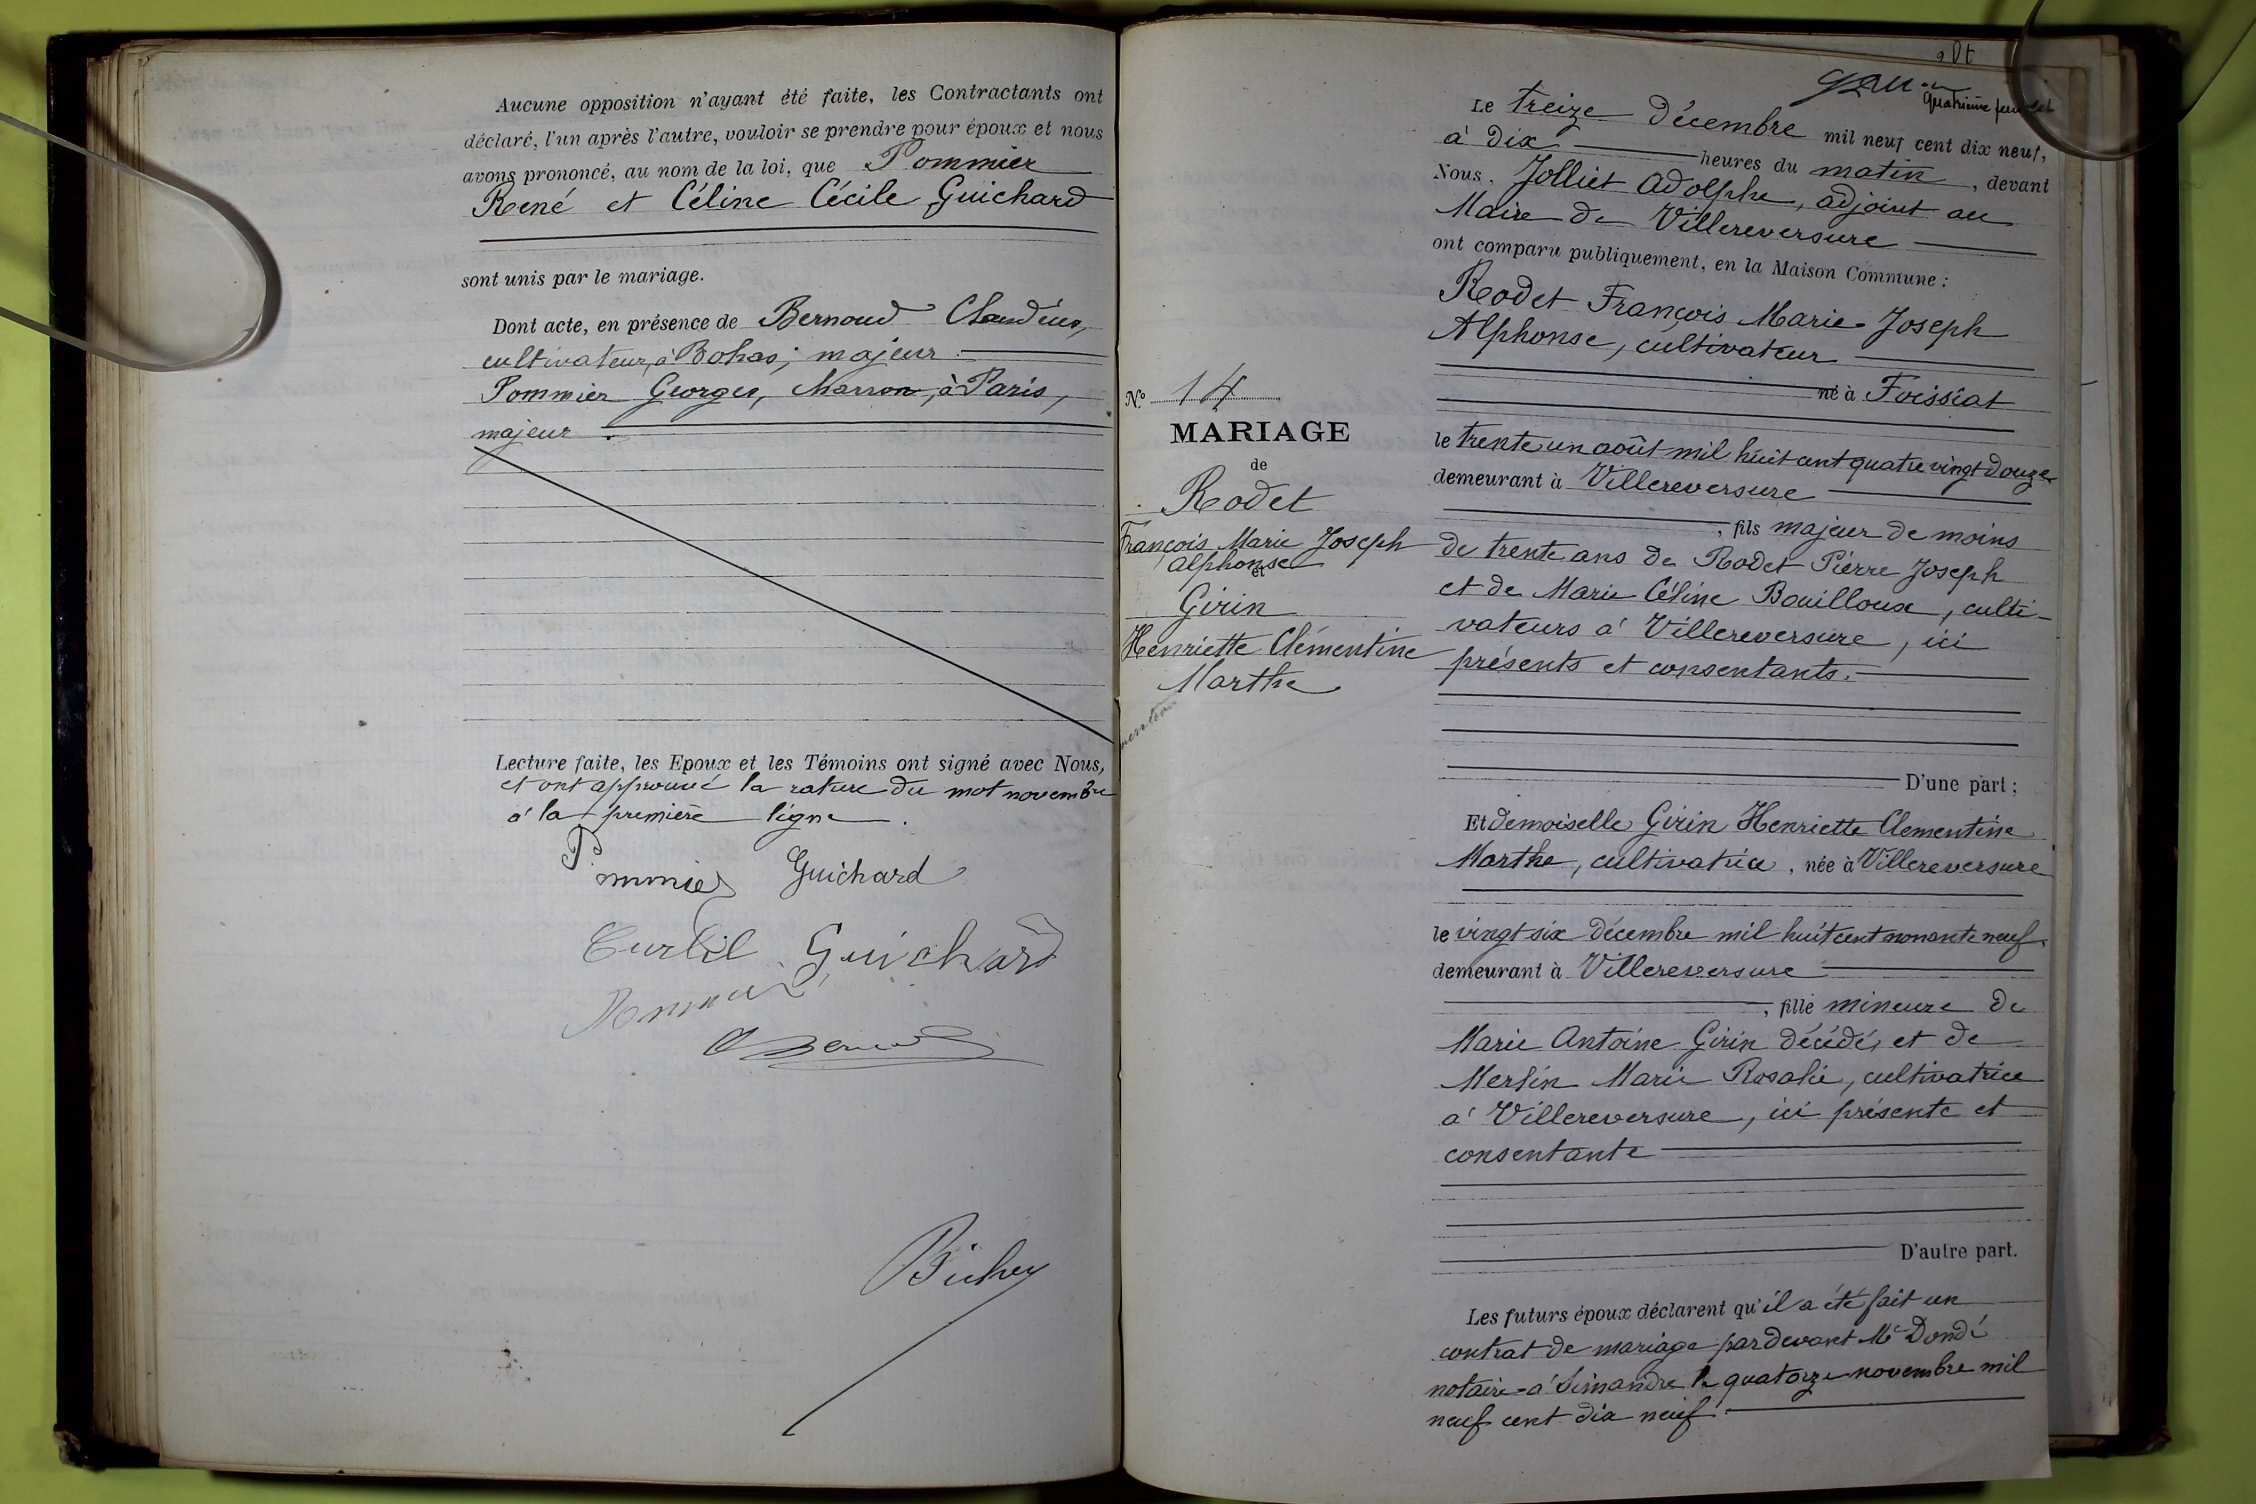 Aucune opposition n'ayant été faite, les Contractants ont
déclaré, l'un après l'autre, vouloir se prendre pour époux et nous
avons prononcé, au nom de la loi, que Pommier
René et Céline Cécile Guichard
sont unis par le mariage.
Dont acte, en présence de Bernoud Claudius,
cultivateur, à Bohas; majeur.
Pommier Georges, à Paris,
majeur.
Lecture faite, les Epoux et les Témoins ont signé avec Nous,
et ont approuvé la rature du mot novembre
à la première ligne.
Pommier Guichard
Curtil Guichard
Quatrième feuillet
Le treize décembre mil neuf cent dix neuf,
à dix heures du matin, devant
Nous, Jolliet Adolphe, adjoint au
Maire de Villereversure
ont comparu publiquement, en la Maison Commune :
Rodet François Marie Joseph
Alphonse, cultivateur
né à Foissiat
le trente un août mil huit cent quatre vingt douze
demeurant à Villereversure
, fils majeur de moins
de trente ans de Rodet Pierre Joseph
et de Marie Céline Bouilloux, culti-
vateurs à Villereversure, ici
présents et consentants.
D'une part ;
Et demoiselle Girin Henriette Clementine
Marthe, cultivatrice, née à Villereversure
le vingt six décembre mil huit cent nonante neuf
demeurant à Villereversure
, fille mineure de
Marie Antoine Girin décédé, et de
Merlin Marie Rosalie, cultivatrice
à Villereversure, ici présente et
consentante
D'autre part.
Les futurs époux déclarent qu'il a été fait un
contrat de mariage pardevant Me Dondé
notaire à Simandre le quatorze novembre mil
neuf cent dix neuf.
No 14
MARIAGE
de
Rodet
François Marie Joseph
Alphonse
et
Girin
Henriette Clémentine
Marthe